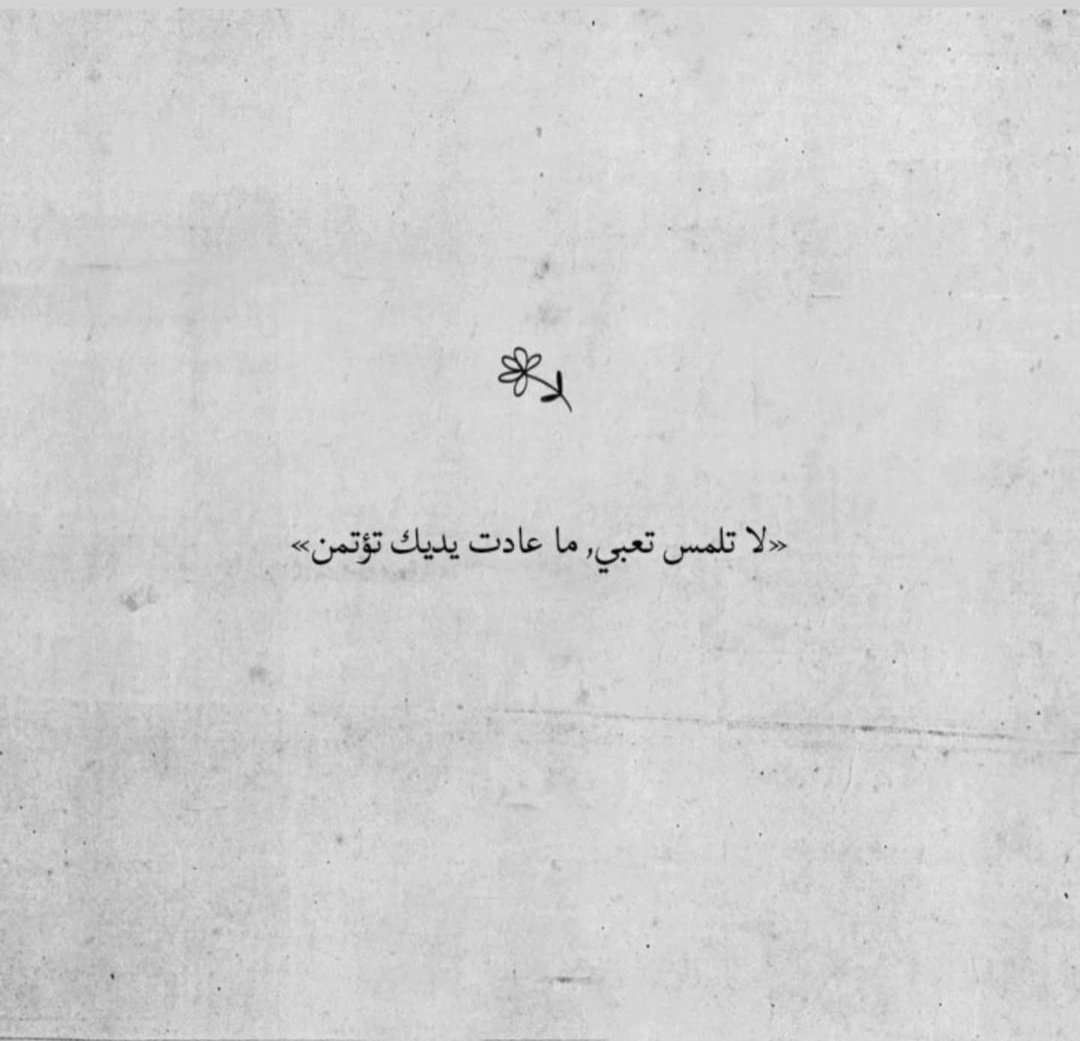 «لا تلمس تعبي, ما عادت يديك تؤتمن»